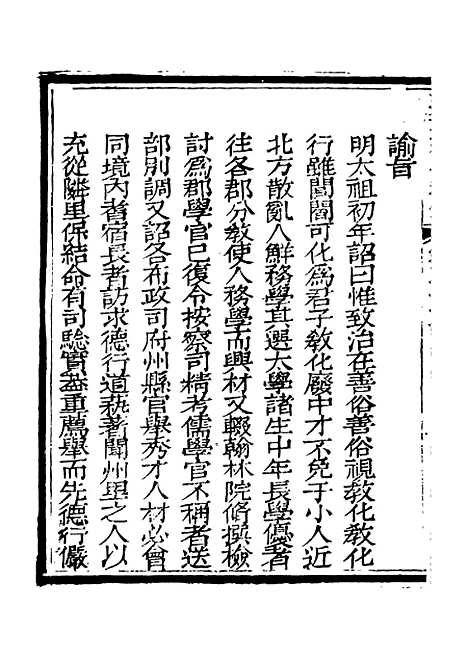 諭旨
明太祖初年詔曰惟致治在善俗善俗視教化教化
行雖閭閻可化為君子教化廢中才不免于小人近
北方散亂人鮮務學其選太學諸生中年長學優者
往各郡分教使人務學而興材又輟翰林院脩撰檢
討為郡學官已復令按察司精考儒學官不稱者送
部別調又詔各布政司府州縣官舉秀才人材必會
同境內耆宿長者訪求德行道藝著聞州里之人以
充從隣里保結命有司驗實蓋重薦舉而先德行嚴